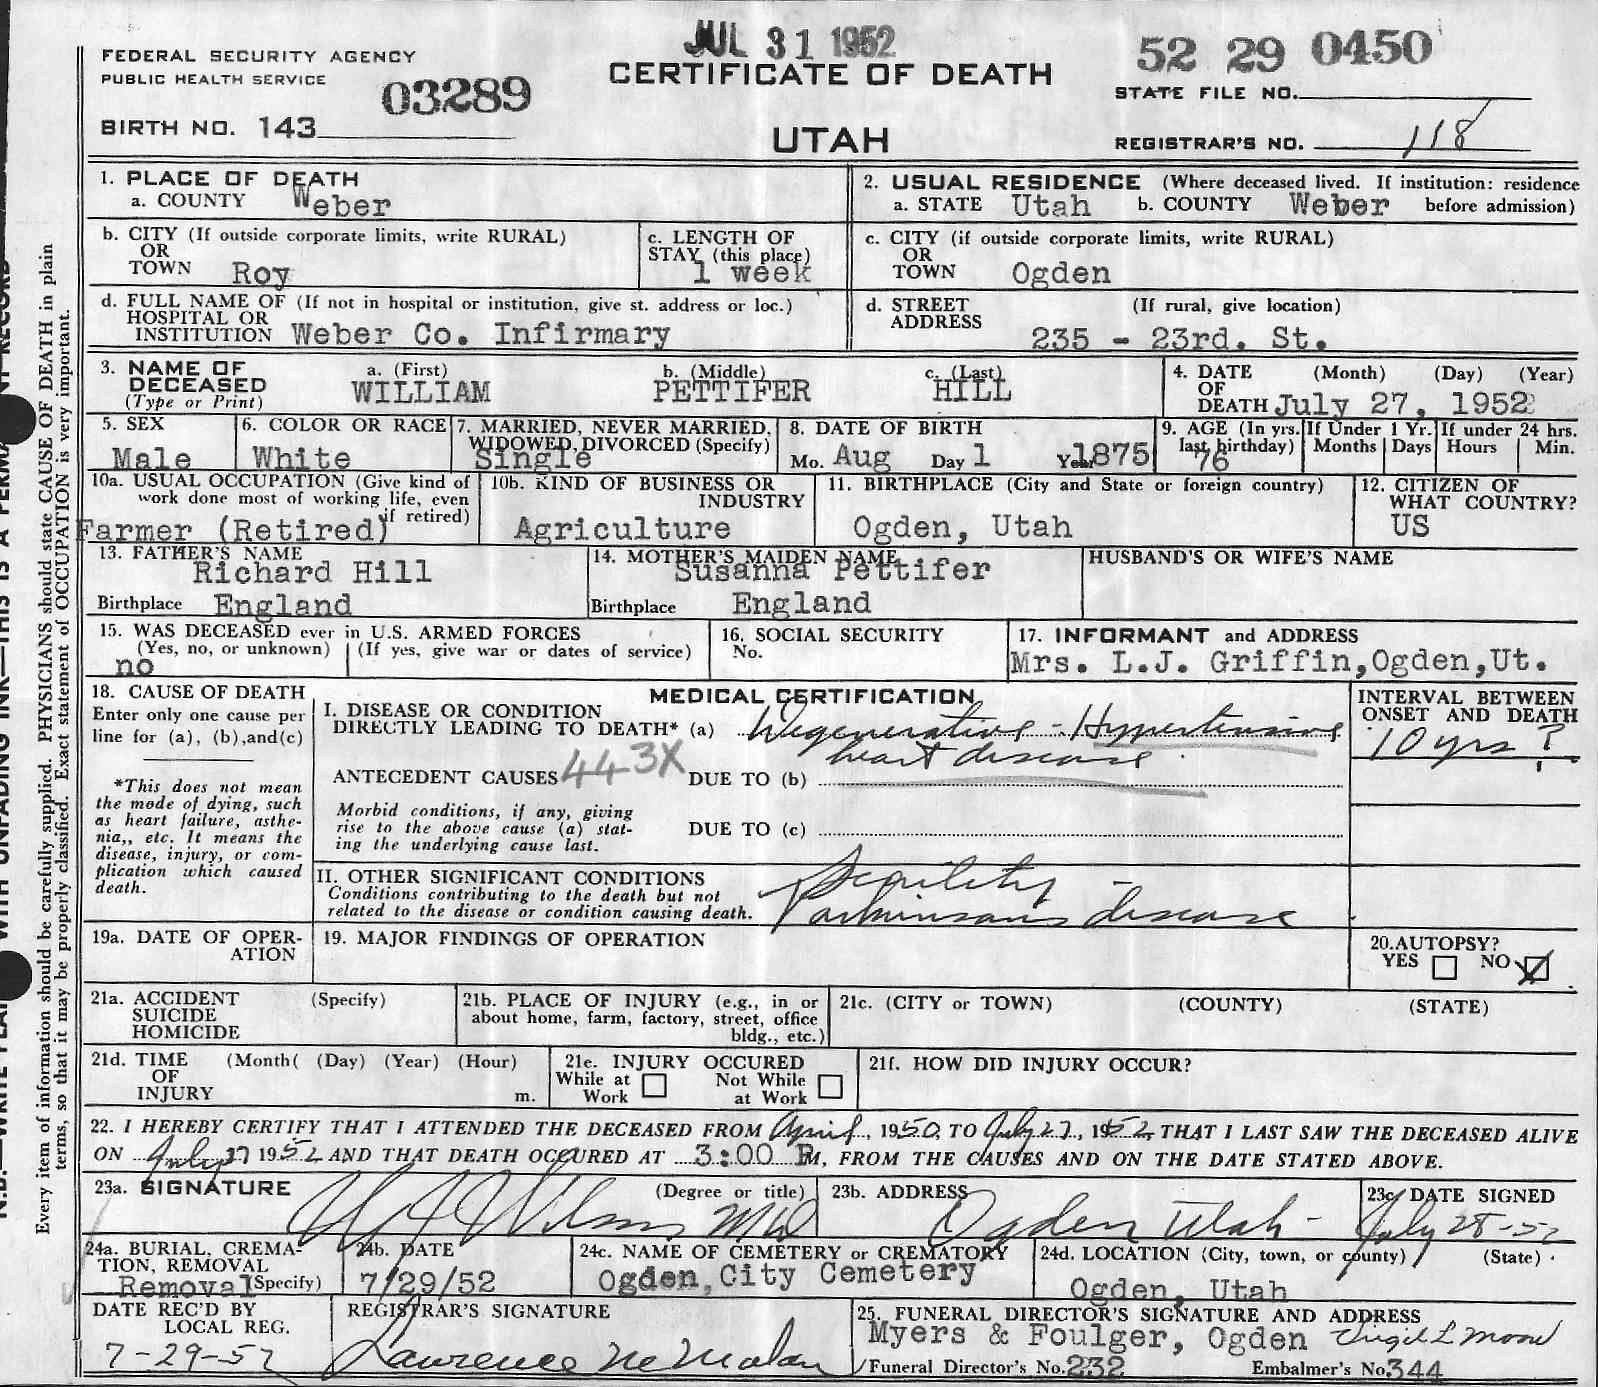 JUL 31 1952
52 29 0450
FEDERAL SECURITY AGENCY
PUBLIC HEALTH SERVICE
03289
CERTIFICATE OF DEATH
STATE FILE NO.
BIRTH NO. 143
UTAH
REGISTRAR'S NO. 118
1. PLACE OF DEATH
a. COUNTY Weber
2. USUAL RESIDENCE (Where deceased lived. If institution: residence
a. STATE Utah b. COUNTY Weber before admission)
b. CITY (If outside corporate limits, write RURAL)
OR
TOWN Roy
c. LENGTH OF
STAY (this place)
1 week
c. CITY (if outside corporate limits, write RURAL)
OR
TOWN Ogden
d. FULL NAME OF (If not in hospital or institution, give st. address or loc.)
HOSPITAL OR
INSTITUTION Weber Co. Infirmary
d. STREET (If rural, give location)
ADDRESS
235 - 23rd. St.
3. NAME OF
DECEASED
(Type or Print)
a. (First)
WILLIAM
b. (Middle)
PETTIFER
c. (Last)
HILL
4. DATE (Month) (Day) (Year)
OF
DEATH July 27, 1952
5. SEX
Male
6. COLOR OR RACE
White
7. MARRIED, NEVER MARRIED,
WIDOWED, DIVORCED (Specify)
Single
8. DATE OF BIRTH
Mo. Aug Day 1 Year 1875
9. AGE (In yrs.
last birthday)
76
If Under 1 Yr.
Months Days
If under 24 hrs.
Hours Min.
10a. USUAL OCCUPATION (Give kind of
work done most of working life, even
if retired)
Farmer (Retired)
10b. KIND OF BUSINESS OR
INDUSTRY
Agriculture
11. BIRTHPLACE (City and State or foreign country)
Ogden, Utah
12. CITIZEN OF
WHAT COUNTRY?
US
13. FATHER'S NAME
Richard Hill
Birthplace England
14. MOTHER'S MAIDEN NAME
Susanna Pettifer
Birthplace England
HUSBAND'S OR WIFE'S NAME
15. WAS DECEASED ever in U.S. ARMED FORCES
(Yes, no, or unknown) (If yes, give war or dates of service)
no
16. SOCIAL SECURITY
No.
17. INFORMANT and ADDRESS
Mrs. L.J. Griffin,Ogden,Ut.
18. CAUSE OF DEATH
Enter only one cause per
line for (a), (b),and(c)
*This does not mean
the mode of dying, such
as heart failure, asthe-
nia,, etc. It means the
disease, injury, or com-
plication which caused
death.
MEDICAL CERTIFICATION
I. DISEASE OR CONDITION
DIRECTLY LEADING TO DEATH* (a) Degenerative - Hypertensive
heart disease
ANTECEDENT CAUSES 443X DUE TO (b)
Morbid conditions, if any, giving
rise to the above cause (a) stat-
ing the underlying cause last.
DUE TO (c)
INTERVAL BETWEEN
ONSET AND DEATH
10 yrs ?
II. OTHER SIGNIFICANT CONDITIONS
Conditions contributing to the death but not
related to the disease or condition causing death.
Senility -
Parkinsons disease
19a. DATE OF OPER-
ATION
19. MAJOR FINDINGS OF OPERATION
20.AUTOPSY?
YES NO
21a. ACCIDENT (Specify)
SUICIDE
HOMICIDE
21b. PLACE OF INJURY (e.g., in or
about home, farm, factory, street, office
bldg., etc.)
21c. (CITY or TOWN) (COUNTY) (STATE)
21d. TIME (Month( (Day) (Year) (Hour)
OF
INJURY m.
21e. INJURY OCCURED
While at Work
Not While at Work
21f. HOW DID INJURY OCCUR?
22. I HEREBY CERTIFY THAT I ATTENDED THE DECEASED FROM April, 1950, TO July 27, 1952, THAT I LAST SAW THE DECEASED ALIVE
ON July 27 1952 AND THAT DEATH OCCURED AT 3:00 PM, FROM THE CAUSES AND ON THE DATE STATED ABOVE.
23a. SIGNATURE (Degree or title)
Wilson MD
23b. ADDRESS
Ogden Utah -
23c. DATE SIGNED
July 28-52
24a. BURIAL, CREMA-
TION, REMOVAL
Removal (Specify)
24b. DATE
7/29/52
24c. NAME OF CEMETERY or CREMATORY
Ogden City Cemetery
24d. LOCATION (City, town, or county) (State)
Ogden, Utah
DATE REC'D BY
LOCAL REG.
7-29-52
REGISTRAR'S SIGNATURE
Lawrence
25. FUNERAL DIRECTOR'S SIGNATURE AND ADDRESS
Myers & Foulger, Ogden Virgil L Moore
Funeral Director's No.232 Embalmer's No.344
Every item of information should be carefully supplied. PHYSICIANS should state CAUSE OF DEATH in plain
terms, so that it may be properly classified. Exact statement of OCCUPATION is very important.